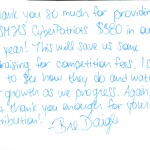 Thank you so much for providing
CyberPatriots $380 in our
year! This will save us some
raising for competition fees. I
to see how they do and wat
growth as we progress. Again
thank you enough for your
tribution!